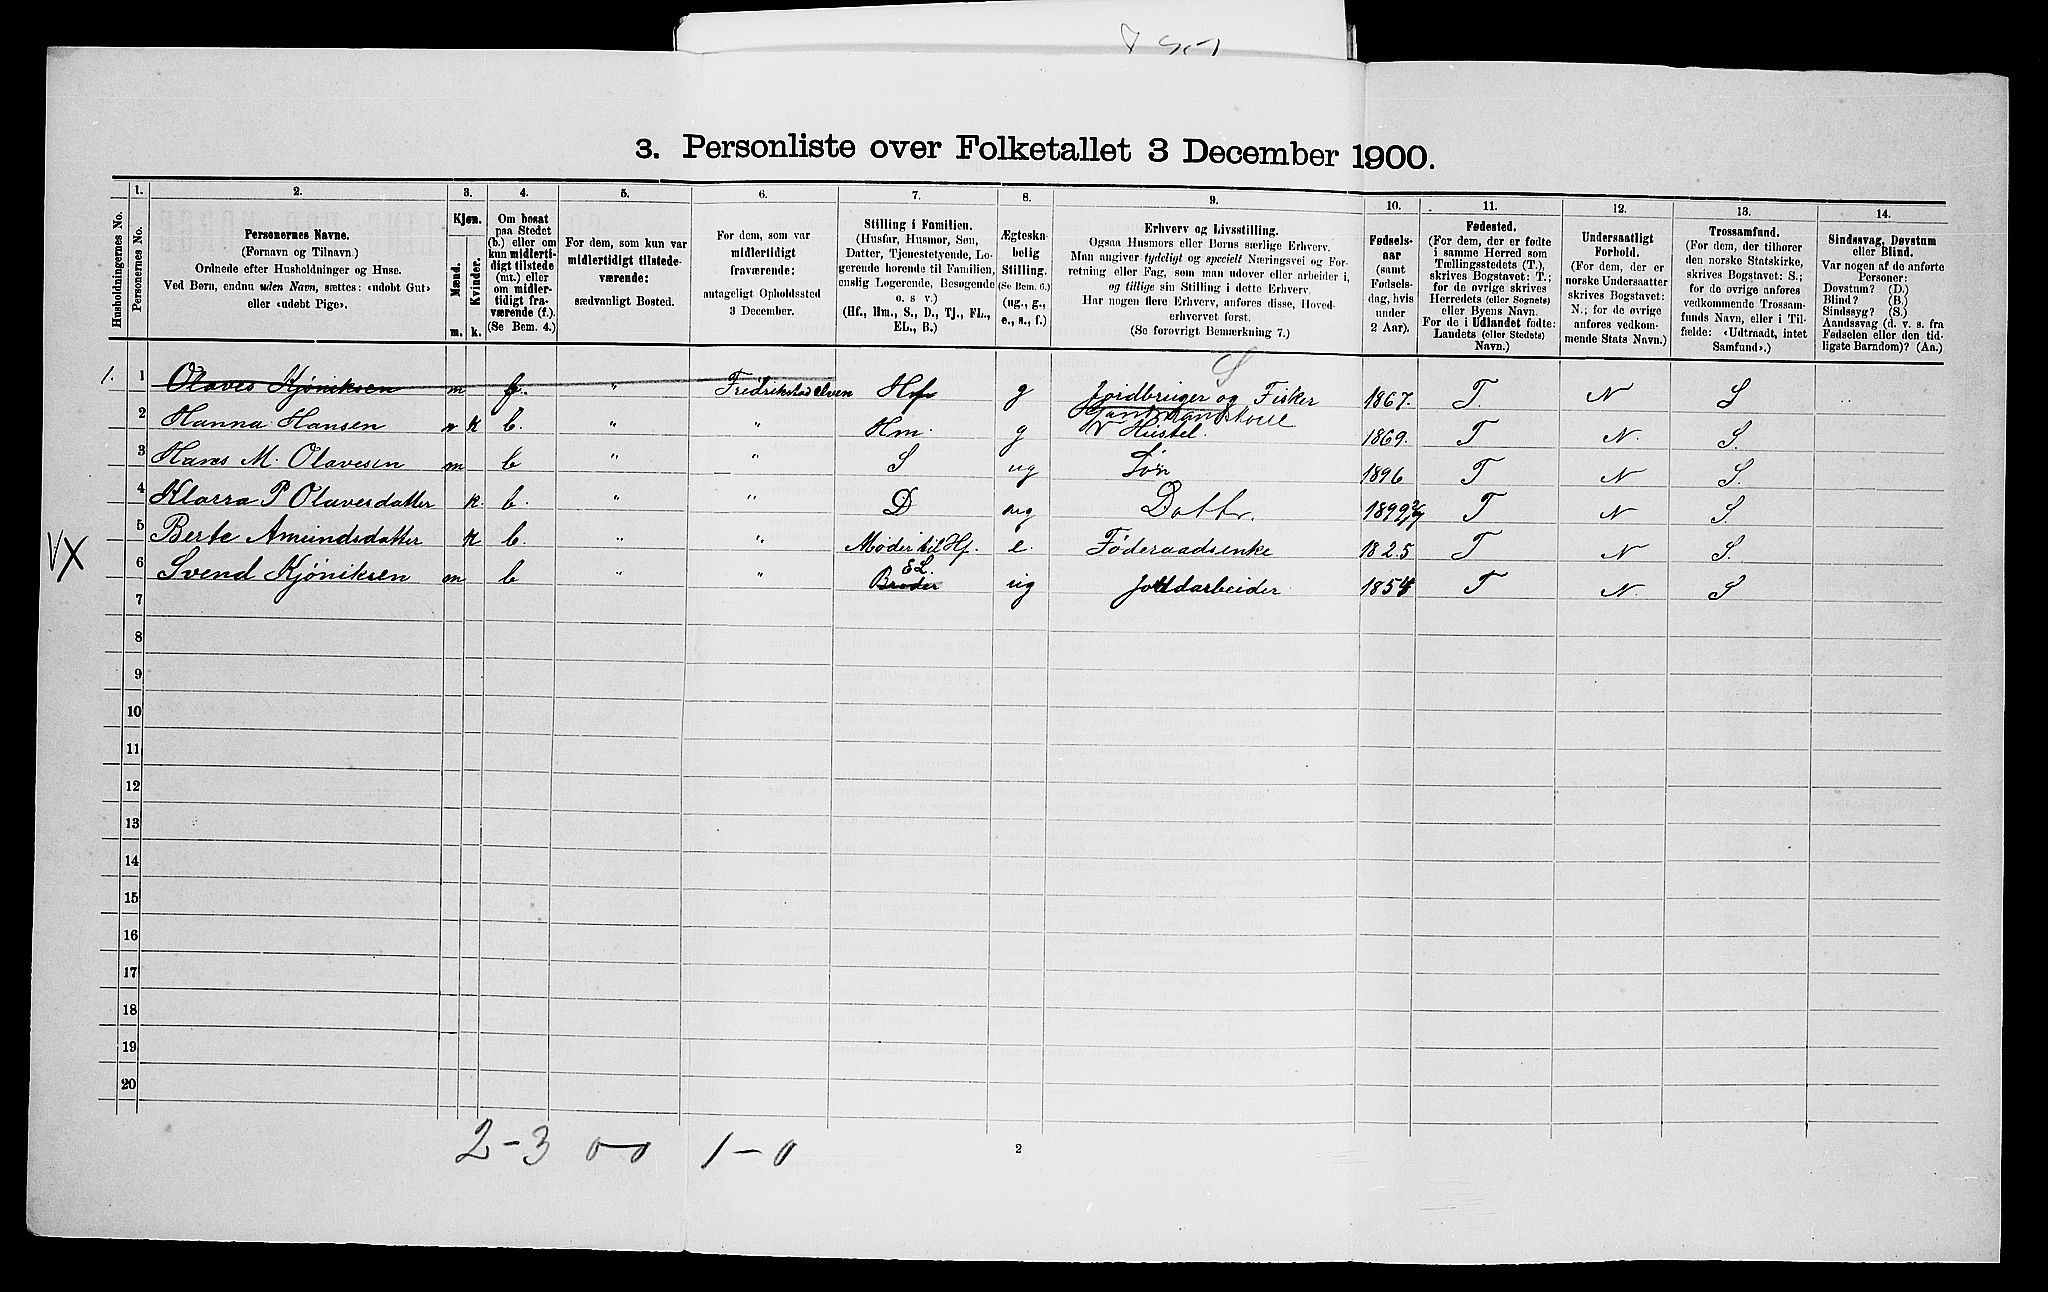 3. Personliste over Folketallet 3 December 1900.
Husholdningernes No.
1. Personernes No.
2. Personernes Navne. (Fornavn og Tilnavn.) Ordnede efter Husholdninger og Huse. Ved Børn, endnu uden Navn, sættes: «udøbt Gut» eller «udøbt Pige».
3. Kjøn. Mænd. m. Kvinder. k.
4. Om bosat paa Stedet (b.) eller om kun midlertidigt tilstede (mt.) eller om midlertidigt fraværende (f.). (Se Bem. 4.)
5. For dem, som kun var midlertidigt tilstedeværende: sædvanligt Bosted.
6. For dem, som var midlertidigt fraværende: antageligt Opholdssted 3 December.
7. Stilling i Familien. (Husfar, Husmor, Søn, Datter, Tjenestetyende, Logerende hørende til Familien, enslig Logerende, Besøgende o. s v.) (Hf., Hm., S., D., Tj., FL., EL., B.)
8. Ægteskabelig Stilling. (Se Bem. 6.) (ug., g., e., s., f.)
9. Erhverv og Livsstilling. Ogsaa Husmors eller Børns særlige Erhverv. Man angiver tydeligt og specielt Næringsvei og Forretning eller Fag, som man udøver eller arbeider i, og tillige sin Stilling i dette Erhverv. Har nogen flere Erhverv, anføres disse, Hovederhvervet først. (Se forøvrigt Bemerkning 7.)
10. Fødselsaar (samt Fødselsdag, hvis under 2 Aar).
11. Fødested. (For dem, der er fødte i samme Herred som Tællingsstedets (T.), skrives Bogstavet: T.; for de øvrige skrives Herredets (eller Sognets) eller Byens Navn. For de i Udlandet fødte: Landets (eller Stedets) Navn.)
12. Undersaatligt Forhold. (For dem, der er norske Undersaatter skrives Bogstavet: N.; for de øvrige anføres vedkommende Stats Navn.)
13. Trossamfund. (For dem, der tilhører den norske Statskirke, skrives Bogstavet: S.; for de øvrige anføres vedkommende Trossamfunds Navn, eller i Tilfælde: «Udtraadt, intet Samfund».)
14. Sindssvag, Døvstum eller Blind. Var nogen af de anførte Personer: Døvstum? (D.) Blind? (B.) Sindssyg? (S.) Aandssvag (d. v. s. fra Fødselen eller den tidligste Barndom)? (Aa.)
S
1. 1 Olaves Kjøniksen m f. " Fredrikstadelven Hf g Jordbruger og Fisker 1867. T. N S ..
2 Hanna Hansen k b. " " Hm. g Hustel. 1869. T N. S.
3 Hans M. Olavesen m b " " S ug Søn 1896 T N S.
4 Klarra P Olavesdatter k. b. " " D ug Dattr. 1899 2/7 T N S.
5 Berte Amundsdatter k b. " " Moder til Hf. e. Føderaadsenke 1825 T N S.
VX 6 Svend Kjøniksen m b " " Broder EL. ug Jordarbeider 1854 T N S
7
8
9
10
11
12
13
14
15
16
17
18
19
20
2-3 0-0 1-0
2